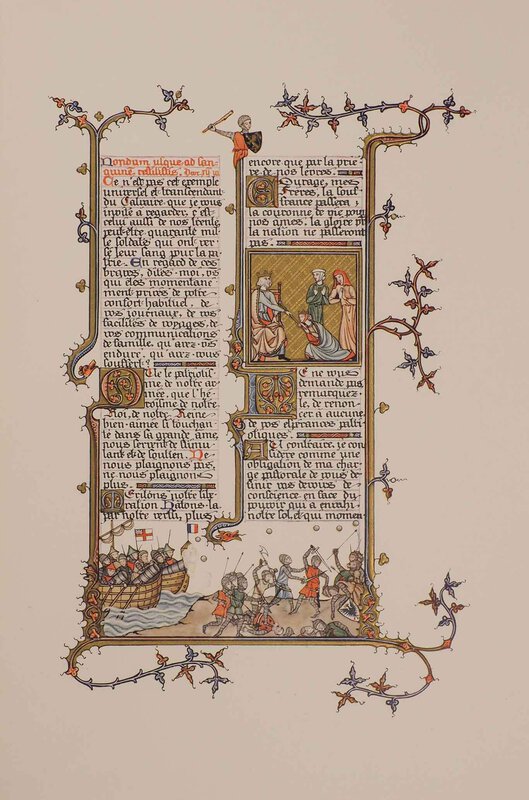 Nondum usque ad san-
guinē restitistis.
Ce n'est pas cet exemple
universel et transcendant
du Calvaire que je vous
invite à regarder, c'est
celui aussi de nos trente
peut être quarante mil-
le soldats qui ont ver-
sé leur sang pour la pa-
trie. En regard de ces
braves, dites-moi, vs
qui êtes momentané-
ment privés de votre
confort habituel, de
vos journaux, de vos
facilités de voyages, de
vos communications
de famille, qu'avez-vs
enduré, qu'avez-vous
souffert?
Que le patriotis-
me de notre ar-
mée, que l'hé-
roïsme de notre
Roi, de notre Reine
bien-aimée si touchan-
te dans sa grande âme,
nous servent de stimu-
lant et de soutien. Ne
nous plaignons pas,
ne nous plaignons
plus.
Méritons notre libé-
ration. Hâtons-la
par notre vertu, plus
encore que par la priè-
re de nos lèvres.
Courage, mes
Frères, la souf-
france passera;
la couronne de vie pour
nos âmes, la gloire pr
la nation ne passeront
pas.
Je ne vous
demande pas,
remarquez-
le, de renon-
cer à aucune
de vos espérances patri-
otiques.
Au contraire, je con-
sidère comme une
obligation de ma char-
ge pastorale de vous dé-
finir vos devoirs de
conscience en face du
pouvoir qui a envahi
notre sol et qui momen-